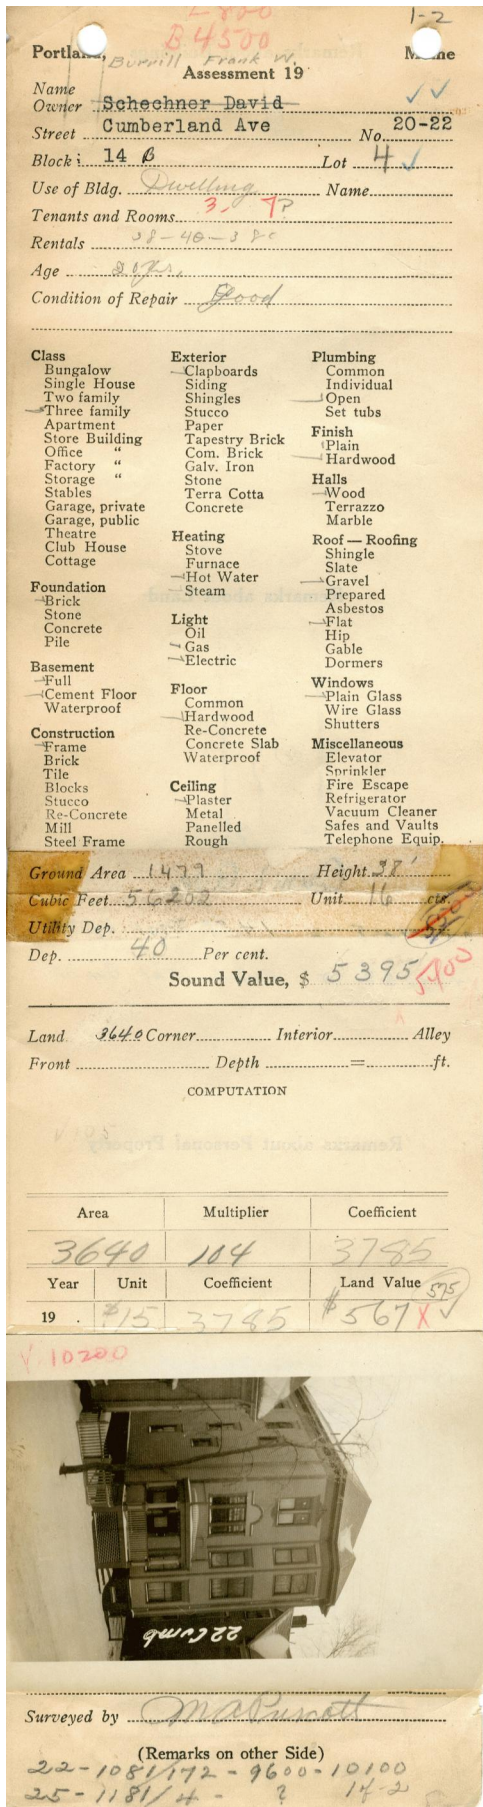 L 800
1-2
B 4500
Portland, Maine
Burrill Frank W.
Assessment 19
Name
Owner Schechner David
Street Cumberland Ave No. 20-22
Block: 14 B Lot 4
Use of Bldg. Dwelling Name
Tenants and Rooms 3. 7?
Rentals 38-40-38
Age 20 yrs.
Condition of Repair Good
Class
Bungalow
Single House
Two family
Three family
Apartment
Store Building
Office "
Factory "
Storage "
Stables
Garage, private
Garage, public
Theatre
Club House
Cottage
Foundation
Brick
Stone
Concrete
Pile
Basement
Full
Cement Floor
Waterproof
Construction
Frame
Brick
Tile
Blocks
Stucco
Re-Concrete
Mill
Steel Frame
Exterior
Clapboards
Siding
Shingles
Stucco
Paper
Tapestry Brick
Com. Brick
Galv. Iron
Stone
Terra Cotta
Concrete
Heating
Stove
Furnace
Hot Water
Steam
Light
Oil
Gas
Electric
Floor
Common
Hardwood
Re-Concrete
Concrete Slab
Waterproof
Ceiling
Plaster
Metal
Panelled
Rough
Plumbing
Common
Individual
Open
Set tubs
Finish
Plain
Hardwood
Halls
Wood
Terrazzo
Marble
Roof — Roofing
Shingle
Slate
Gravel
Prepared
Asbestos
Flat
Hip
Gable
Dormers
Windows
Plain Glass
Wire Glass
Shutters
Miscellaneous
Elevator
Sprinkler
Fire Escape
Refrigerator
Vacuum Cleaner
Safes and Vaults
Telephone Equip.
Ground Area 1479 Height 38'
Cubic Feet 56202 Unit 16 cts.
Utility Dep.
Dep. 40 Per cent.
Sound Value, $ 5395 5400
Land 3640 Corner Interior Alley
Front Depth = ft.
COMPUTATION
Area Multiplier Coefficient
3640 104 3785
Year Unit Coefficient Land Value 575
19 . $15 3785 $567 X
V 10200
22 Cumb
Surveyed by
(Remarks on other Side)
22-1081/172-9600-10100
25-1181/4- ? 1f-2